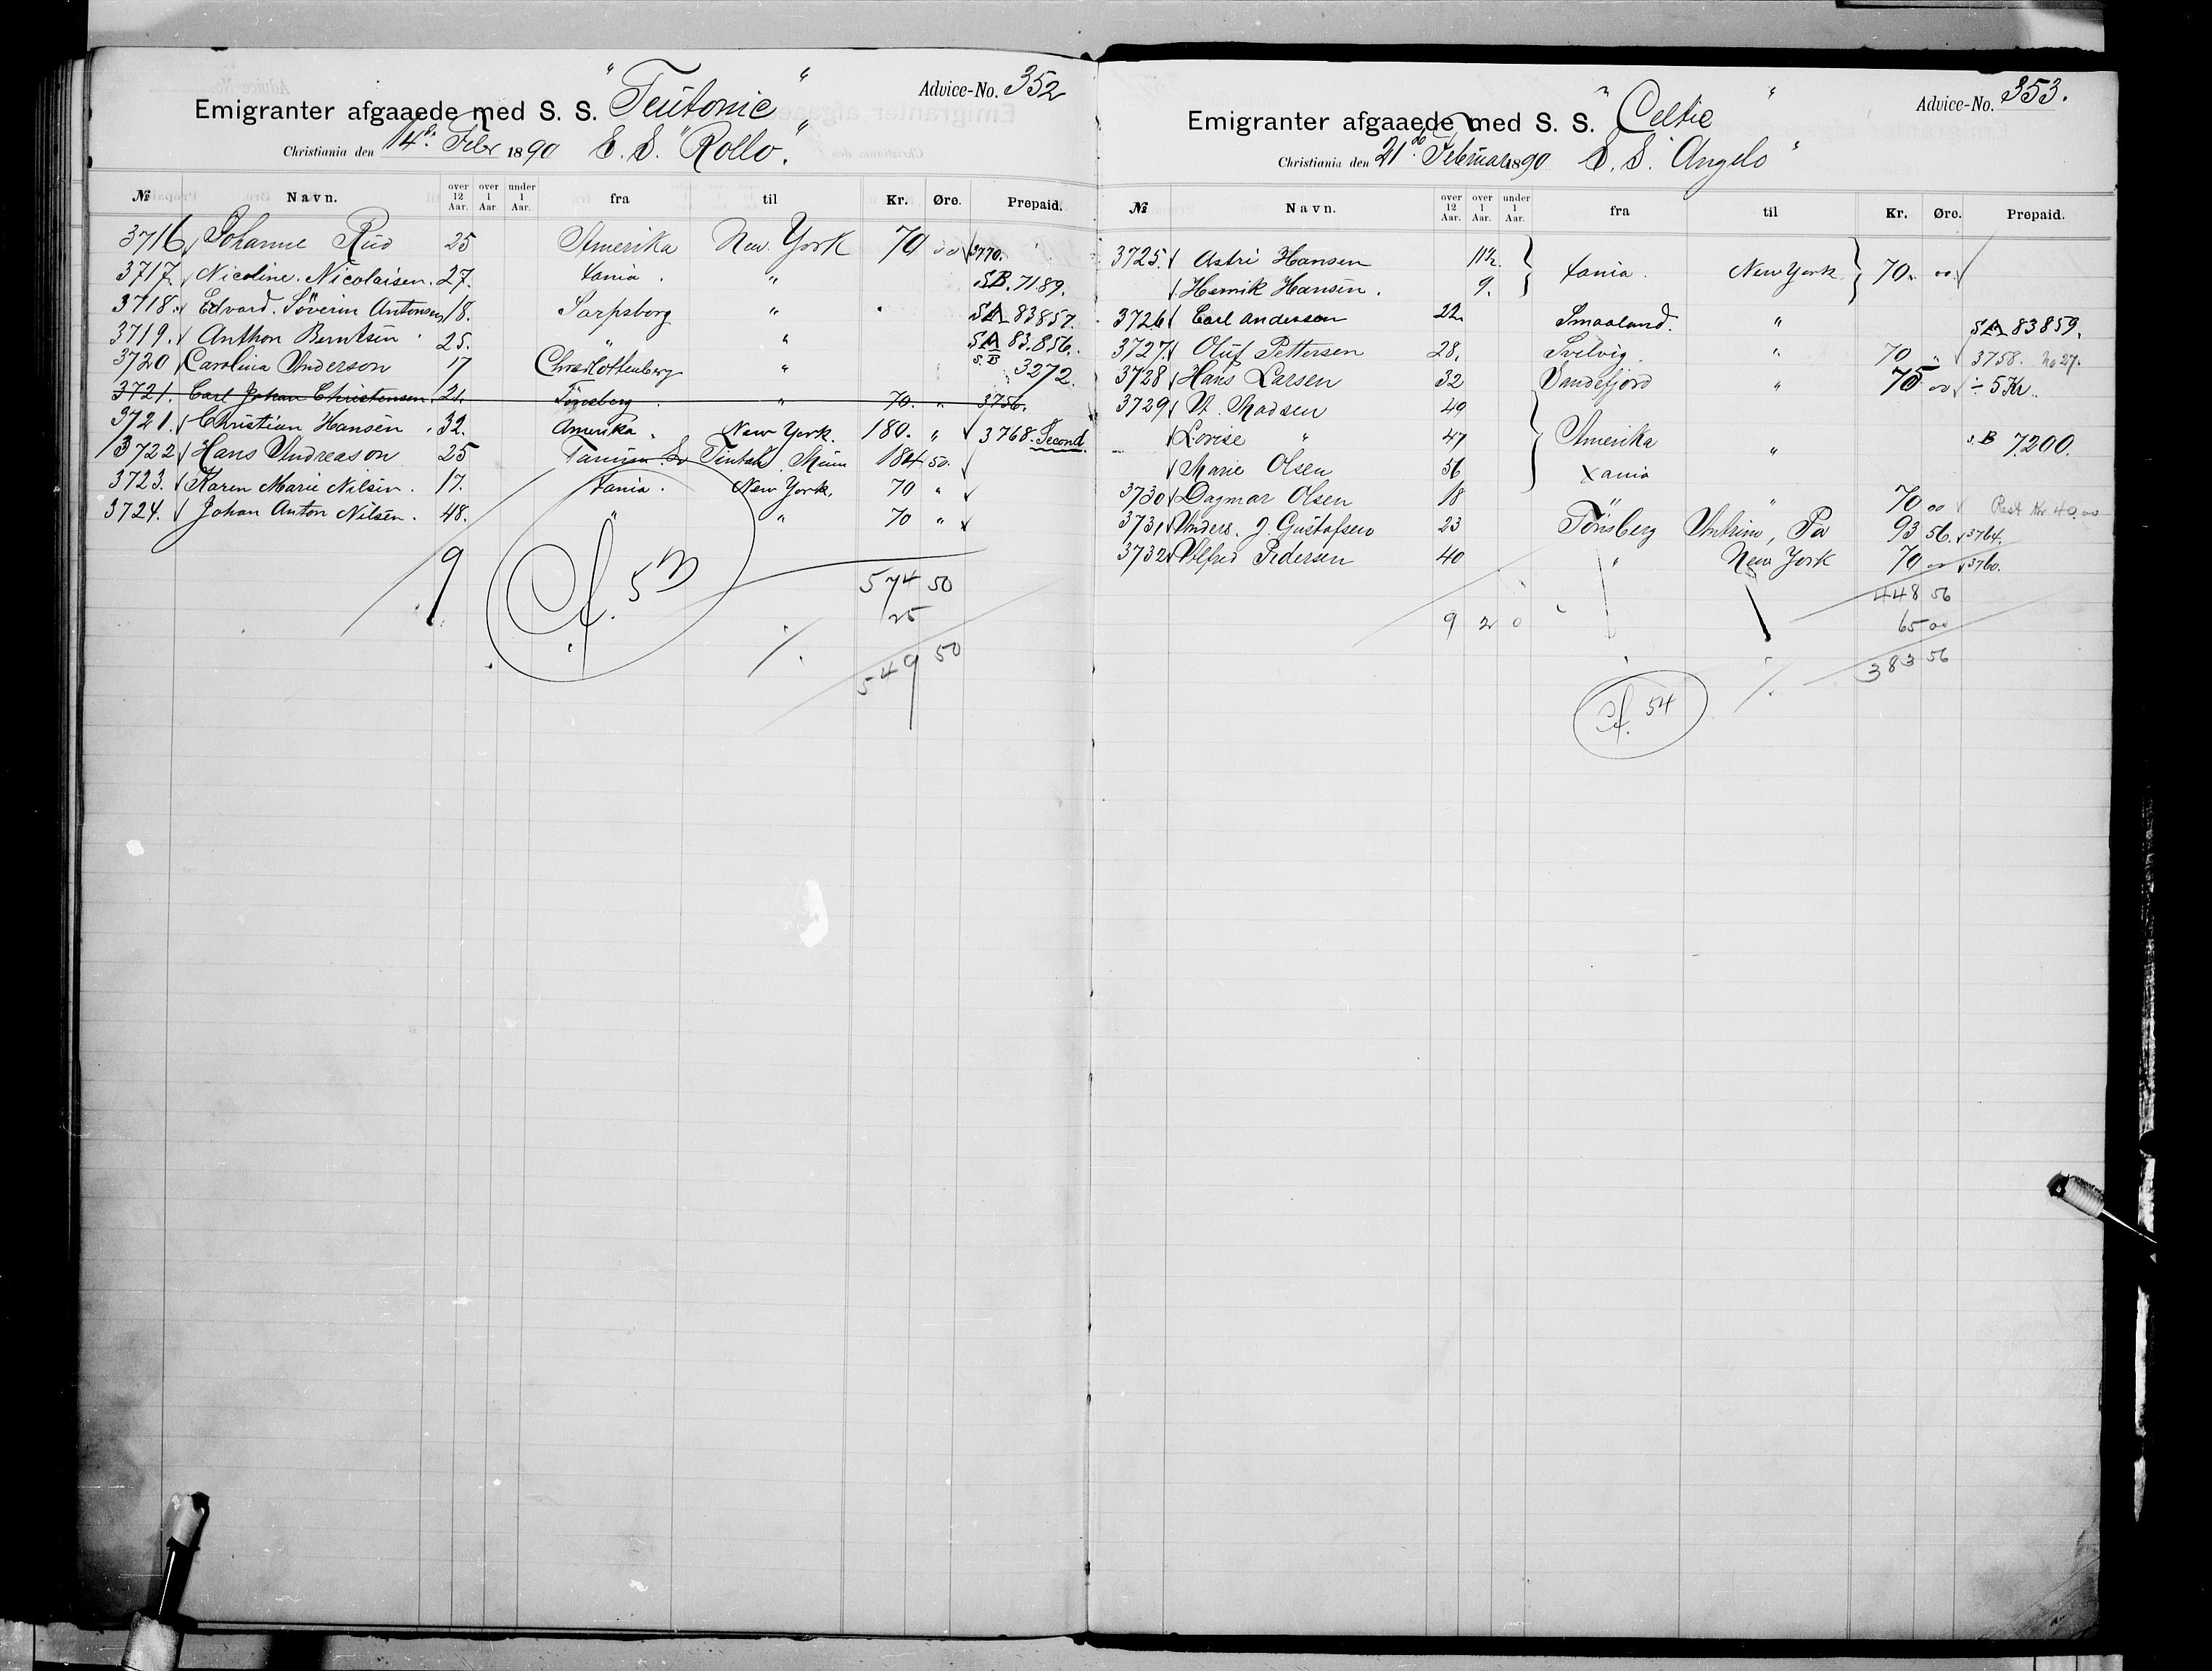 Advice-No. 352
Emigranter afgaaede med S. S. "Teutonic"
Christiania den 14de Febr 1890 S. S. "Rollo".
№ Navn. over 12 Aar. over 1 Aar. under 1 Aar. fra til Kr. Øre. Prepaid.
3716 Johanne Rud 25 Amerika New York 70 00 3770.
3717. Nicoline. Nicolaisen. 27. Xania. " SB. 7189.
3718. Edvard. Söverin Antonsen 18. Sarpsborg " SA 83857.
3719. Anthon Berntsen 25. " " SA 83.856.
3720 Carolina Anderson 17 Charlottenberg " S.B 3272.
3721. Carl Johan Christensen. 21. Tönsberg " 70. " 3756.
3721. Christian Hansen. 32. Amerika. New York. 180. " 3768. Second.
3722 Hans Andreason 25 Tintah, Minn 184 50.
3723. Karen Marie Nilsen. 17. Xania. New York. 70 "
3724. Johan Anton Nilsen. 48. " " 70 "
9 574 50
25
549 50
53
Advice-No. 353.
Emigranter afgaaede med S. S. "Celtic"
Christiania den 21de Februar 1890 S. S. "Angelo"
№ Navn. over 12 Aar. over 1 Aar. under 1 Aar. fra til Kr. Øre. Prepaid.
3725. Astri Hansen 11½ Xania. New York 70. 00.
Henrik Hansen. 9.
3726 Carl Anderson 22 Smaaland. " SA 83859.
3727. Oluf Pettersen 28. Svelvig. " 70 " 3758. No 27.
3728 Hans Larsen 32 Sandefjord " 75 00 ÷ 5 Kr.
3729 Madsen 49
Lovise " 47 Amerika " S.B 7200.
Marie Olsen 56 Xania
3730 Dagmar Olsen 18 " 70 00 Rest Kr 40.00
3731 Anders. J. Gustafsen 23 Tönsberg Antrim, Pa 93 56. 3764.
3732 Alfred Pedersen 40 " New York 70 00 3760.
448 56
9 2 0 65 00
383 56
54